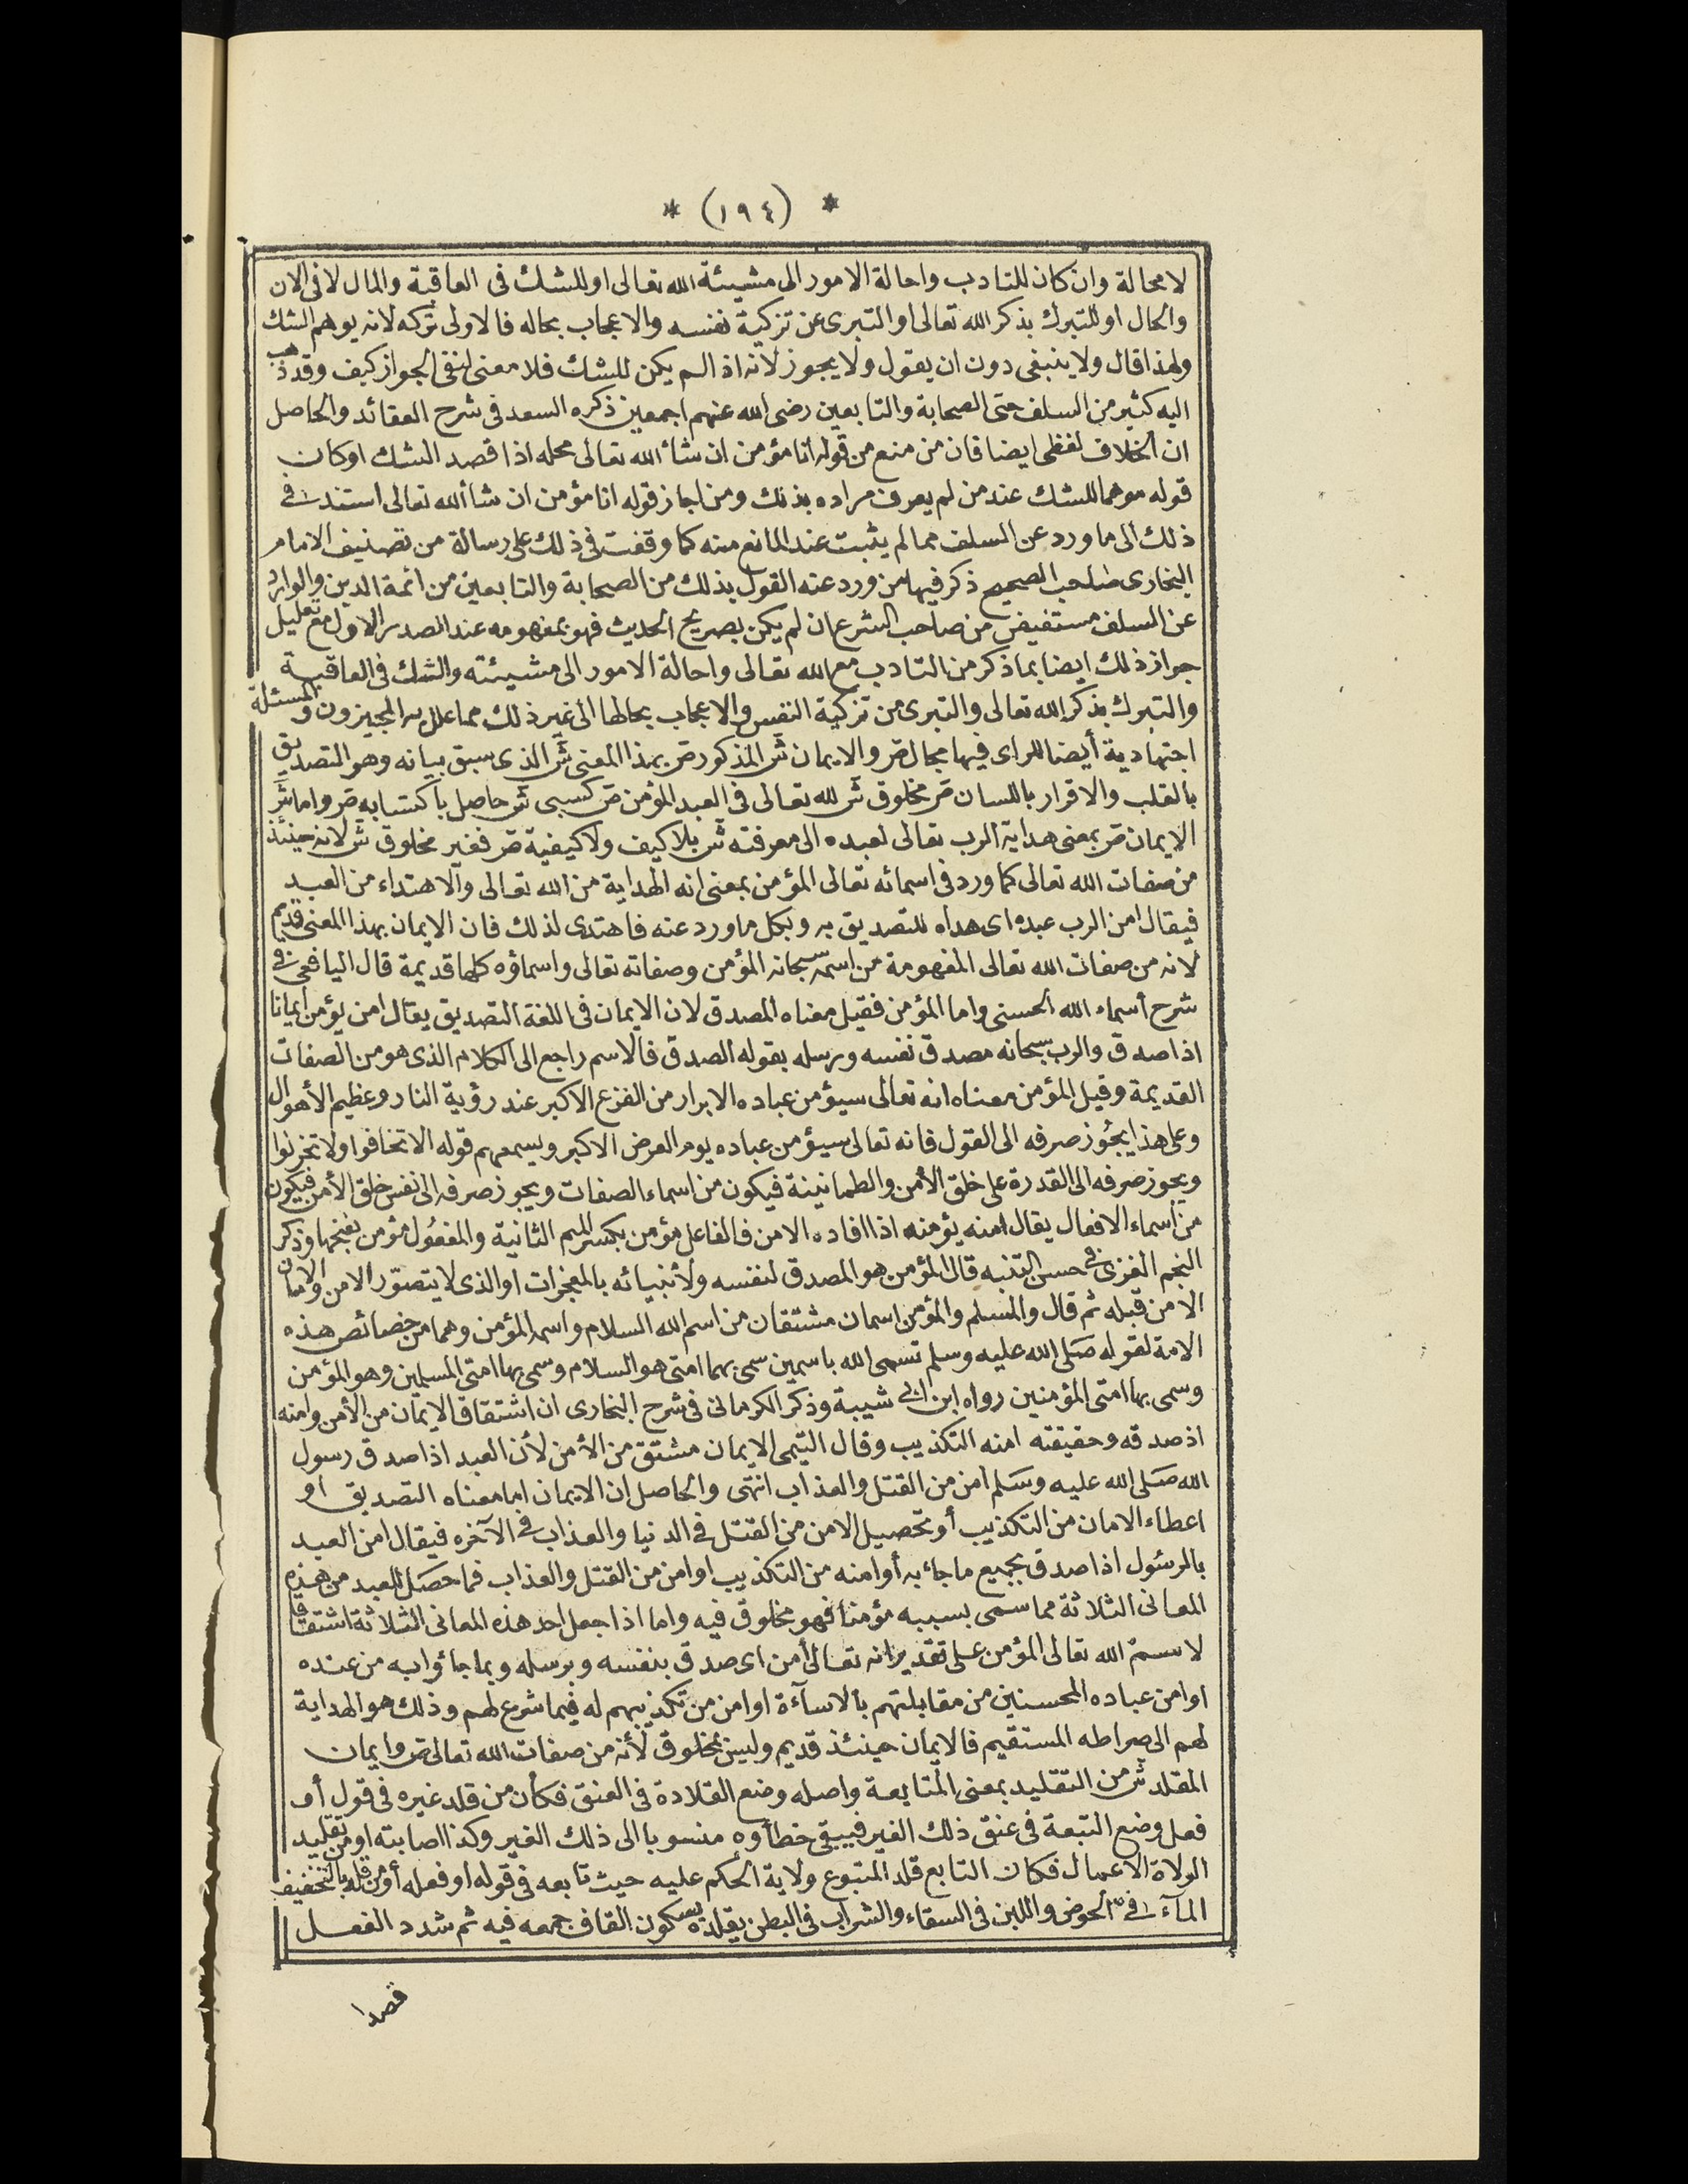 * (١٩٤) *
لا محالة وان كان للتادب واحالة الامور الى مشيئة الله تعالى او للشك فى العاقبة والمال لا فى الآن
والحال او للتبرك بذكر الله تعالى او التبرى عن تزكية نفسه والاعجاب بحاله فالاولى تركه لانه يوهم الشك
ولهذا قال ولا ينبغى دون ان يقول ولا يجوز لانه اذا لم يكن للشك فلا معنى لنفى الجواز كيف وقد ذهب
اليه كثير من السلف حتى الصحابة والتابعين رضى الله عنهم اجمعين ذكره السعد فى شرح العقائد والحاصل
ان الخلاف لفظى ايضا فان من منع من قوله انا مؤمن ان شاء الله تعالى محله اذا قصد الشك او كان
قوله موهما للشك عند من لم يعرف مراده بذلك ومن اجاز قوله انا مؤمن ان شاء الله تعالى استند فى
ذلك الى ما ورد عن السلف مما لم يثبت عند المانع منه كما وقفت فى ذلك على رسالة من تصنيف الامام
البخارى صاحب الصحيح ذكر فيها من ورد عنه القول بذلك من الصحابة والتابعين من ائمة الدين والوارد
عن السلف مستفيض من صاحب الشرع ان لم يكن بصريح الحديث فهو بمفهومه عند الصدر الاول مع تعليل
جواز ذلك ايضا بما ذكر من التادب مع الله تعالى واحالة الامور الى مشيئته والشك فى العاقبة
والتبرك بذكر الله تعالى والتبرى من تزكية النفس والاعجاب بحالها الى غير ذلك مما علل به المجيزون والمسئلة
اجتهادية أيضا للراى فيها مجال ص والايمان ش المذكور ص بهذا المعنى ش الذى سبق بيانه وهو التصديق
بالقلب والاقرار باللسان ص مخلوق ش لله تعالى فى العبد المؤمن ص كسبى ش حاصل باكتسابه ص واما ش
الايمان ص بمعنى هداية الرب تعالى لعبده الى معرفته ش بلا كيف ولا كيفية ص فغير مخلوق ش لانه حينئذ
من صفات الله تعالى كما ورد فى اسمائه تعالى المؤمن بمعنى انه الهداية من الله تعالى والاهتداء من العبد
فيقال امن الرب عبده اى هداه للتصديق به وبكل ما ورد عنه فاهتدى لذلك فان الايمان بهذا المعنى قديم
لانه من صفات الله تعالى المفهومة من اسمه سبحانه المؤمن وصفاته تعالى واسماؤه كلها قديمة قال اليافعى فى
شرح أسماء الله الحسنى واما المؤمن فقيل معناه المصدق لان الايمان فى اللغة التصديق يقال امن يؤمن ايمانا
اذا صدق والرب سبحانه مصدق نفسه ورسله بقوله الصدق فالاسم راجع الى الكلام الذى هو من الصفات
القديمة وقيل المؤمن معناه انه تعالى سيؤمن عباده الابرار من الفزع الاكبر عند رؤية النار وعظيم الأهوال
وعلى هذا يجوز صرفه الى القول فانه تعالى سيؤمن عباده يوم العرض الاكبر ويسمعهم قوله الا تخافوا ولا تحزنوا
ويجوز صرفه الى القدرة على خلق الأمن والطمانينة فيكون من اسماء الصفات ويجوز صرفه الى نفس خلق الأمن فيكون
من أسماء الافعال يقال امنه يؤمنه اذا افاده الامن فالفاعل مؤمن بكسر الميم الثانية والمفعول مؤمن بفتحها وذكر
النجم الغزى فى حسن التنبه قال المؤمن هو المصدق لنفسه ولأنبيائه بالمعجزات او الذى لا يتصوّر الامن والامان
الا من قبله ثم قال والمسلم والمؤمن اسمان مشتقان من اسم الله السلام واسمه المؤمن وهما من خصائص هذه
الامة لقوله صلى الله عليه وسلم تسمى الله باسمين سمى بهما امتى هو السلام وسمى بها امتى المسلمين وهو المؤمن
وسمى بها امتى المؤمنين رواه ابن ابى شيبة وذكر الكرمانى فى شرح البخارى ان اشتقاق الايمان من الأمن وامنه
اذ صدقه وحقيقته امنه التكذيب وقال التيمى الايمان مشتق من الأمن لأن العبد اذا صدق رسول
الله صلى الله عليه وسلم امن من القتل والعذاب انتهى والحاصل ان الايمان اما معناه التصديق او
اعطاء الامان من التكذيب أو تحصيل الامن من القتل فى الدنيا والعذاب فى الآخره فيقال امن العبد
بالرسول اذا صدق بجميع ما جاء به أو امنه من التكذيب او امن من القتل والعذاب فما حصل للعبد من هذه
المعانى الثلاثة مما سمى بسببه مؤمنا فهو مخلوق فيه واما اذا جعل احد هذه المعانى الثلاثة اشتقاقا
لاسم الله تعالى المؤمن على تقدير انه تعالى أمن اى صدق بنفسه وبرسله وبما جاؤا به من عنده
او امن عباده المحسنين من مقابلتهم بالاساءة او امن من تكذيبهم له فيما شرع لهم وذلك هو الهداية
لهم الى صراطه المستقيم فالايمان حينئذ قديم وليس بمخلوق لأنه من صفات الله تعالى ص وايمان
المقلد ش من التقليد بمعنى المتابعة واصله وضع القلادة فى العنق فكأن من قلد غيره فى قول أو
فعل وضع التبعة فى عنق ذلك الغير فيبقى خطأوه منسوبا الى ذلك الغير وكذا اصابته او من تقليد
الولاة الاعمال فكان التابع قلد المتبوع ولاية الحكم عليه حيث تابعه فى قوله او فعله أو من قلد بالتخفيف
الماء فى الحوض واللبن فى السقاء والشراب فى البطن يقلده بسكون القاف جمعه فيه ثم شدد الفعل
قصدا